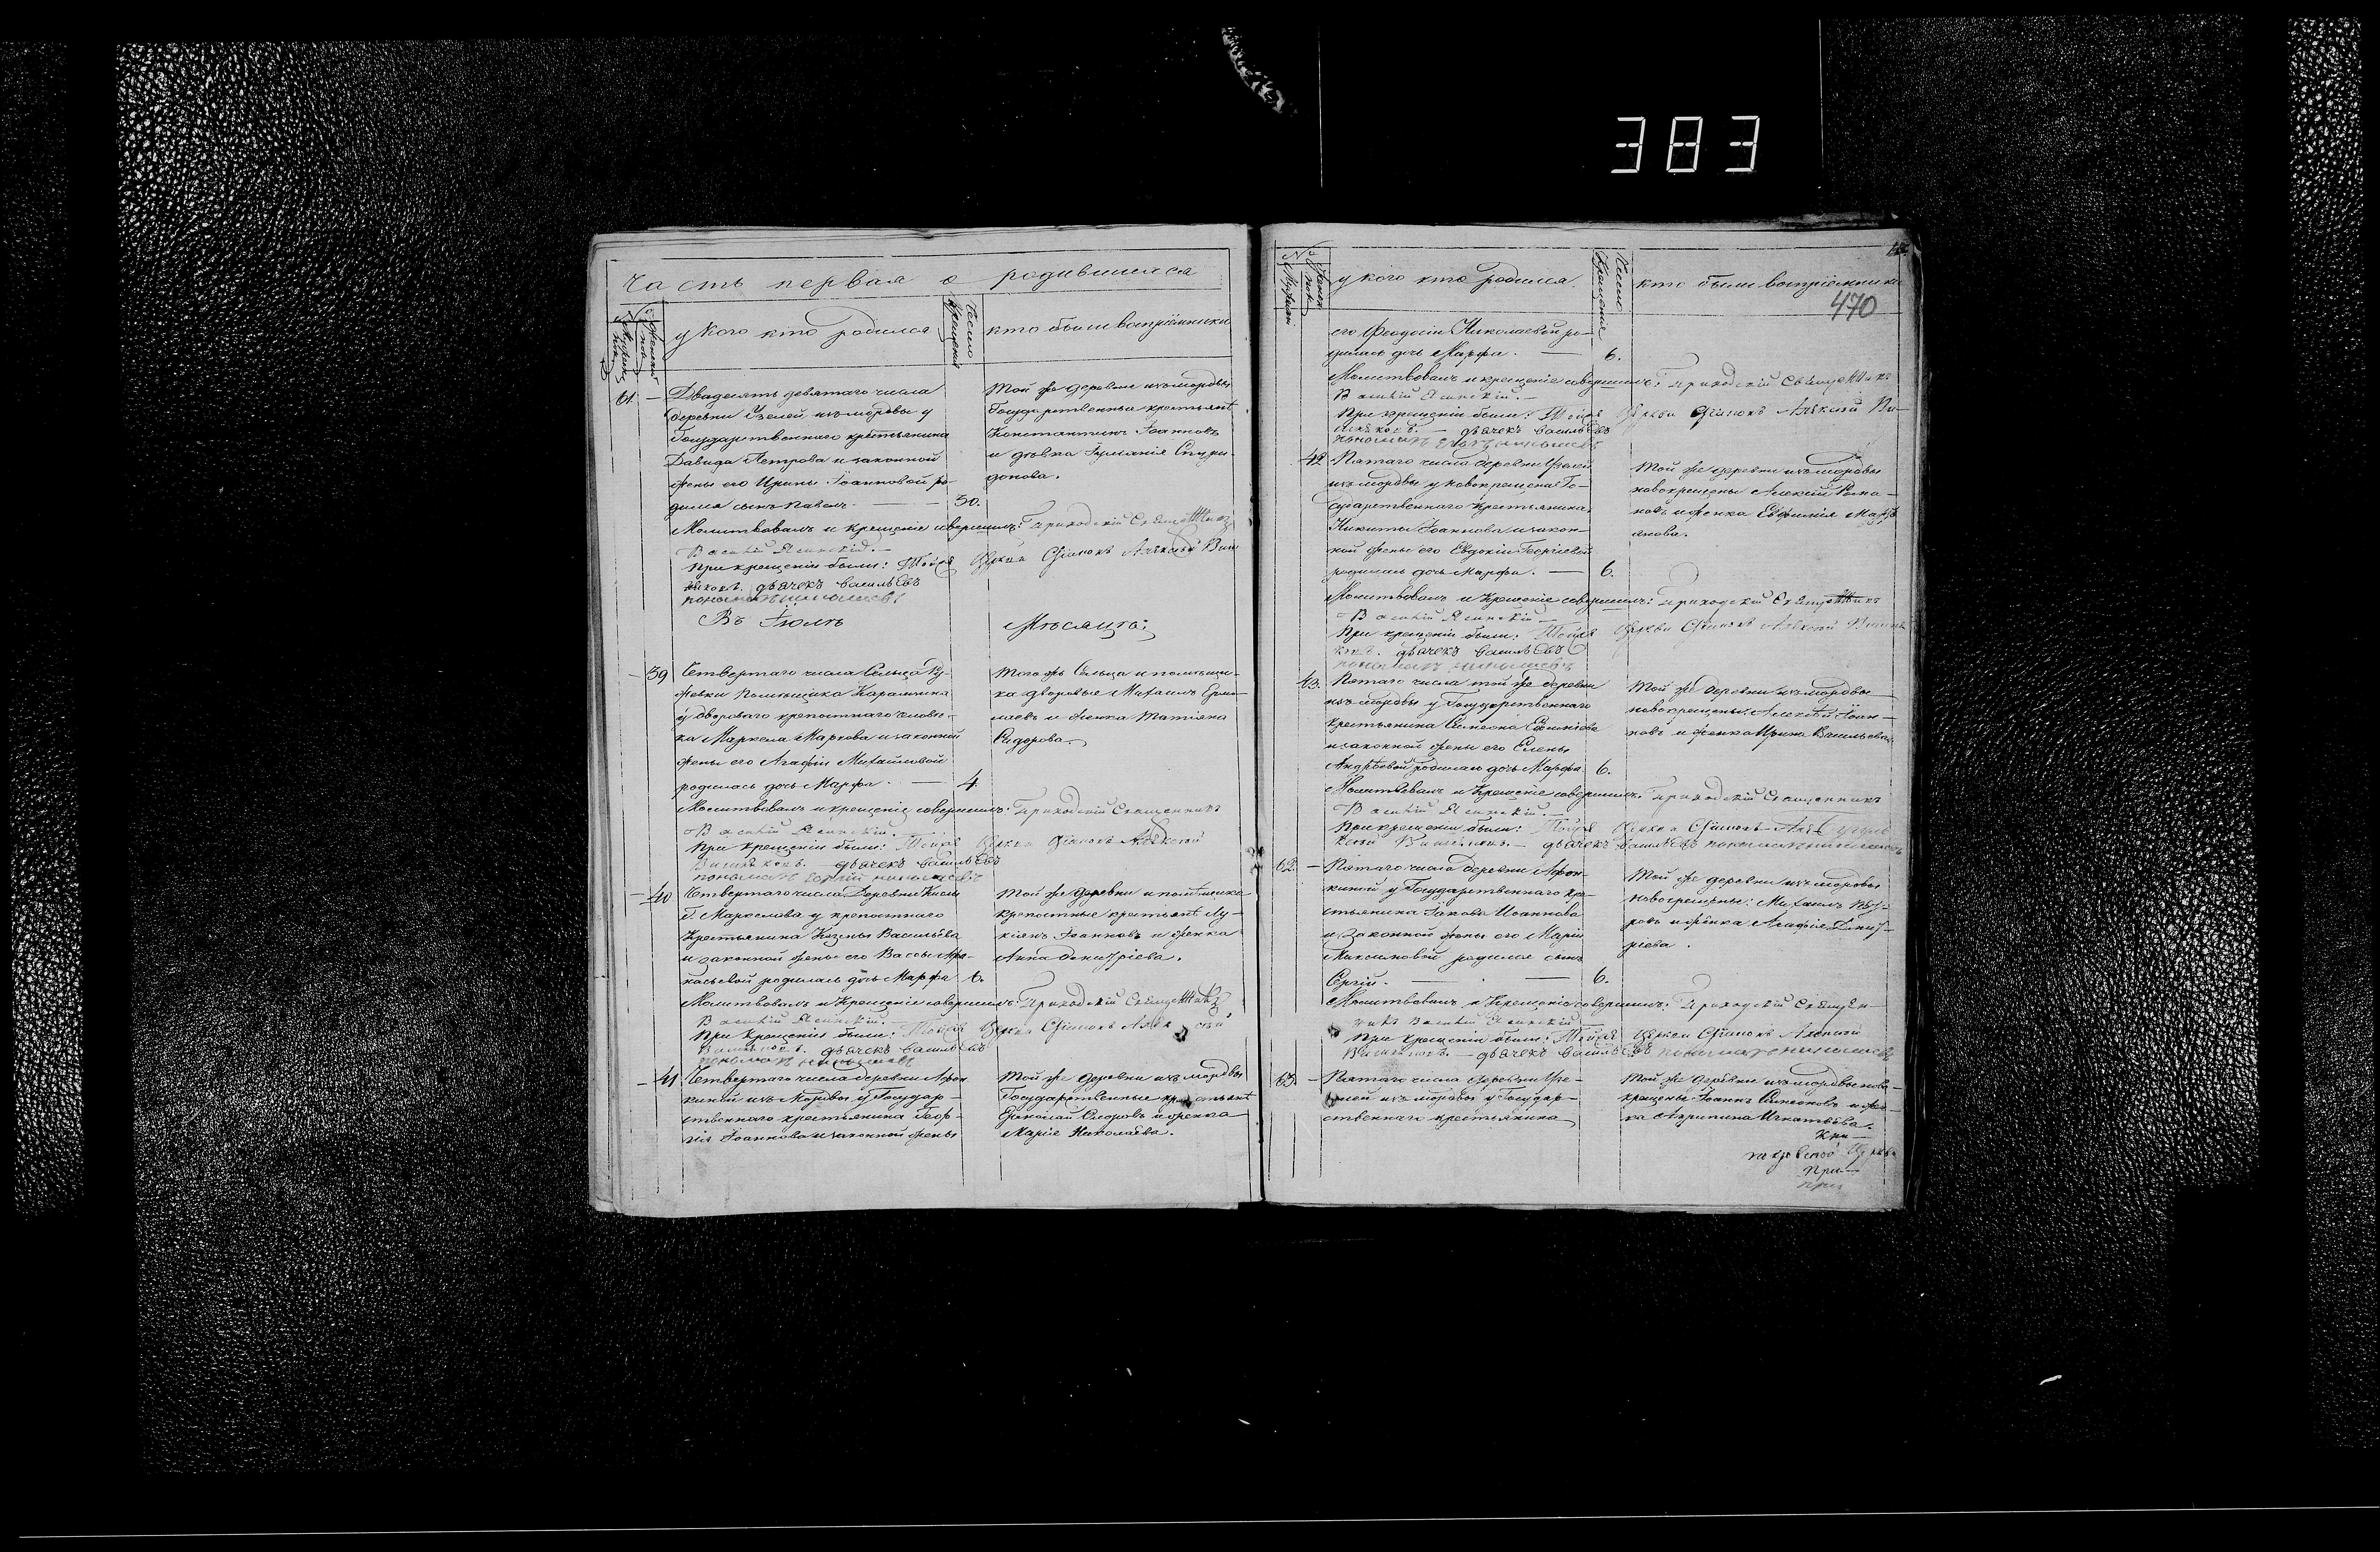 383
Часть первая о родившихся
№
мужеск. пол.
женскаго пол.
у кого кто родился
Число крещенія
кто были воспріемники
61. —
Двадцать девятаго числа
деревни Узелей изъ мордвы у
Государственнаго крестьянина
Давида Петрова и законной
жены его Ирины Іоанновой ро-
дился сынъ Павелъ. — 30.
Той же деревни изъ мордвы
Государственные крестьяне
Константинъ Іоанновъ
и дѣвка Іуліанія Спири-
донова.
Молитвовалъ и крещеніе совершилъ: приходскій Священникъ
Василій Ясинскій. —
При крещеніи были: Тойже Церкви Діаконъ Алексѣй
дьячекъ Васильевъ
Въ Іюлѣ Мѣсяцѣ:
— 39
Четвертаго числа Сельца Ку-
февки помѣщика Карамзина
у двороваго крепостнаго человѣ-
ка Маркела Маркова и законной
жены его Агафіи Михайловой
родилась дочь Марфа. — 4.
Того жъ Сельца и помѣщи-
ка дворовые Михаилъ Ерми-
лаевъ и женка Татіана
Сидорова.
Молитвовалъ и крещеніе совершилъ: Приходскій Священникъ
Василій Ясинскій.
При крещеніи были: Тойже Церкви Діаконъ Алексѣй
дьячекъ Васильевъ
— 40
Четвертаго числа Деревни
Г. у крепостнаго
Крестьянина Козмы Васильева
и законной жены его Вассы Афа-
насьевой родилась дочь Марфа 6.
Той же деревни и помѣщика
крепостные крестьяне Лу-
кіянъ Іоанновъ и женка
Анна Димитріева.
Молитвовалъ и Крещеніе совершилъ: Приходскій Священникъ
Василій Ясинскій. —
При крещеніи были: Тойже Церкви Діаконъ Алексѣй
дьячекъ Васильевъ
— 41
Четвертаго числа деревни Афон-
киной изъ Мордвы у Государ-
ственнаго крестьянина Геор-
гія Іоаннова и законной жены
Той же деревни изъ мордвы
Государственные крестьяне
Николай Сидоровъ и женка
Марія Николаева.
№
Мужескаго
Женск. пол.
у кого кто родился.
Число крещенія
кто были воспріемники
470
его Феодосіи Николаевой ро-
дилась дочь Марфа. — 6.
Молитвовалъ и крещеніе совершилъ: приходскій Священникъ
Василій Ясинскій. —
При крещеніи были: Тойже Церкви Діаконъ Алексѣй
— дьячекъ Васильевъ
42
Пятаго числа деревни Узелей
изъ мордвы у новокрещена Го-
сударственнаго крестьянина
Никиты Іоаннова и закон-
ной жены его Евдокіи Георгіевой
родилась дочь Марфа. — 6.
Той же деревни изъ мордвы
новокрещены Алексій Рома-
новъ и женка Евфимія
Молитвовалъ и Крещеніе совершилъ: приходскій Священникъ
Василій Ясинскій —
При крещеніи были: Тойже Церкви Діаконъ Алексѣй
дьячекъ Васильевъ
43.
Пятаго числа той же деревни
изъ мордвы у Государственнаго
крестьянина Симеона Ефимова
и законной жены его Елены
Андреевой родилась дочь Марфа 6.
Той же деревни изъ мордвы
новокрещены: Алексѣй Іоан-
новъ и женка Ирина Васильева.
Молитвовалъ и Крещеніе совершилъ: приходскій Священникъ
Василій Ясинскій. —
При крещеніи были: Тойже Церкви Діаконъ
дьячекъ Васильевъ
62. —
Пятаго числа деревни Афон-
киной у Государственнаго кре-
стьянина Іакова Иоаннова
и законной жены его Маріи
Максимовой родился сынъ
Сергій. — 6.
Той же деревни изъ мордвы
новокрещены: Михаилъ Пет-
ровъ и женка Агафія Дмит-
ріева.
Молитвовалъ и Крещеніе совершилъ: Приходскій Священ-
никъ Василій Ясинскій —
При крещеніи были: Тойже Церкви Діаконъ Алексѣй
— дьячекъ Васильевъ
63. —
Пятаго числа деревни Узе-
лей изъ мордвы у Государ-
ственнаго крестьянина
Той же деревни изъ мордвы ново-
крещены Іоаннъ Симеоновъ и жен-
ка Агрипина Игнатьева.
При
при